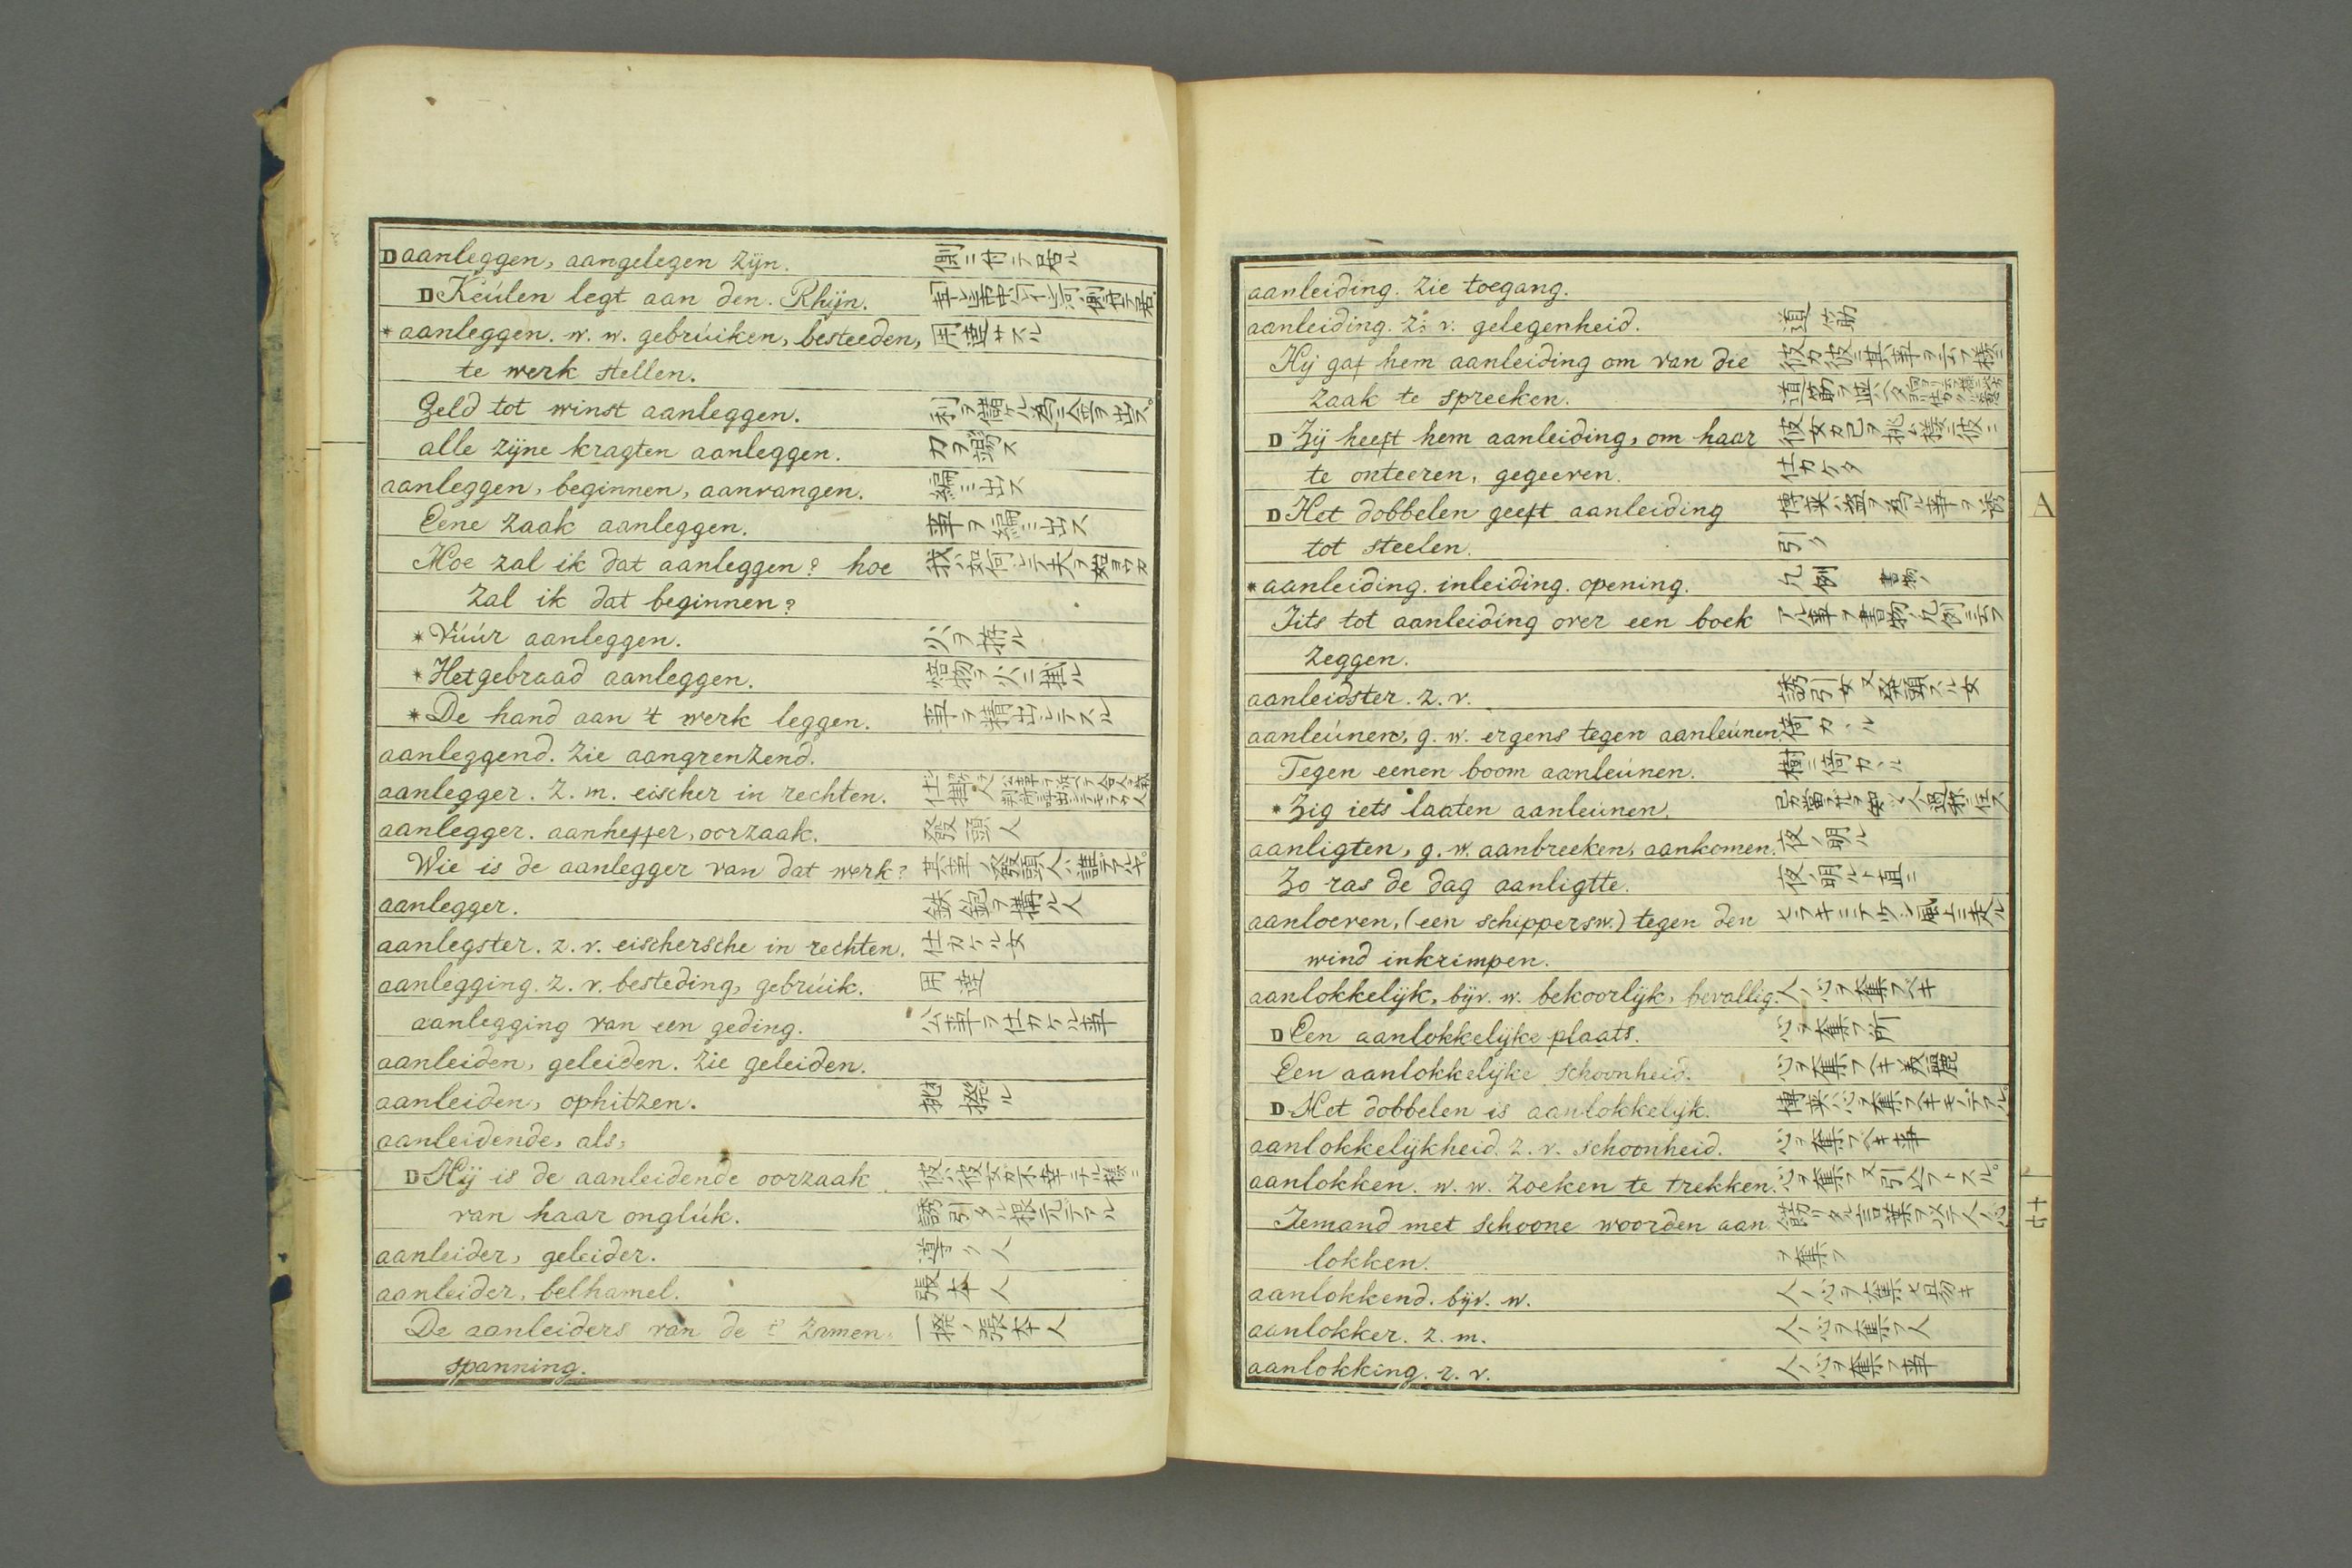 D aanleggen, aangelegen zijn. 側ニ付テ居ル
D Keúlen legt aan den. Rhijn.
* aanleggen. w. w. gebrúiken, besteeden, 用達サスル
te werk stellen.
Geld tot winst aanleggen. 利ヲ儲ケル為ニ金ヲ出ス。
alle zijne kragten aanleggen. 力ヲ竭ス
aanleggen, beginnen, aanvangen. 編ミ出ス
Eene zaak aanleggen. 事ヲ編ミ出ス
Hoe zal ik dat aanleggen? hoe 我ハ如何シテ夫ヲ始ヨウカ
zal ik dat beginnen?
* Vúúr aanleggen. 火ヲ
* Het gebraad aanleggen. 焙物ヲ火ニ掛ル
* De hand aan 't werk leggen. 事ヲ
aanleggend. zie aangrenzend.
aanlegger. z. m. eischer in rechten. 仕掛人
aanlegger. aanheffer, oorzaak. 發頭人
Wie is de aanlegger van dat werk? 其事ノ發頭人ハ誰デアルヤ。
aanlegger. 鉄炮ヲ構ル人
aanlegster. z. v. eischersche in rechten. 仕カケル女
aanlegging. z. v. besteding, gebrúik. 用達
aanlegging van een geding. 公事ヲ仕カケル事
aanleiden, geleiden. zie geleiden.
aanleiden, ophitzen. 挑撥ル
aanleidende, als,
D Hij is de aanleidende oorzaak 彼ハ彼女カ不幸ニナル様ニ
van haar onglúk. 誘引タル根元デアル
aanleider, geleider. 導ク人
aanleider, belhamel. 張本人
De aanleiders van de t' zamen- 一揆ノ張本人
spanning.
aanleiding. zie toegang.
aanleiding. z: v. gelegenheid. 道筋
Hij gaf hem aanleiding om van die 彼カ彼ニ其事ヲ云フ様ニ
zaak te spreeken. 道筋ヲ
D Zij heeft hem aanleiding, om haar 彼女カ己ヲ挑ム様ニ彼ニ
te onteeren, gegeeven. 仕カケタ
D Het dobbelen geeft aanleiding 博奕ハ盗ヲ為ル事ヲ誘
tot steelen. 引ク
* aanleiding. inleiding. opening. 凡例 書物ノ
Iits tot aanleiding over een boek アル事ヲ書物ノ凡例ニ云フ
zeggen.
aanleidster. z. v. 誘引女又發頭スル女
aanleúnen, g. w. ergens tegen aanleúnen. 倚カヽル
Tegen eenen boom aanleúnen. 樹ニ倚カヽル
* Zig iets laaten aanleúnen.
aanligten, g. w. aanbreeken, aankomen. 夜ノ明ル
Zo ras de dag aanligtte. 夜ノ明ルト直ニ
aanloeven, (een schippersw.) tegen den
wind inkrimpen.
aanlokkelijk, bijv. w. bekoorlijk, bevallig. 人ノ心ヲ奪フベキ
D Een aanlokkelijke plaats. 心ヲ奪フ所
Een aanlokkelijke schoonheid. 心ヲ奪フベキ美麗
D Het dobbelen is aanlokkelijk. 博奕ハ心ヲ奪フベキモノデアル。
aanlokkelijkheid. z. v. schoonheid. 心ヲ奪フベキ事
aanlokken. w. w. zoeken te trekken. 心ヲ奪フ又引ムフトスル。
Iemand met schoone woorden aan 飾リタル言葉ヲ以テ人ノ心
lokken. ヲ奪フ
aanlokkend. bijv. w. 人ノ心ヲ奪ヒ易キ
aanlokker. z. m. 人ノ心ヲ奪フ人
aanlokking. z. v. 人ノ心ヲ奪フ事
A